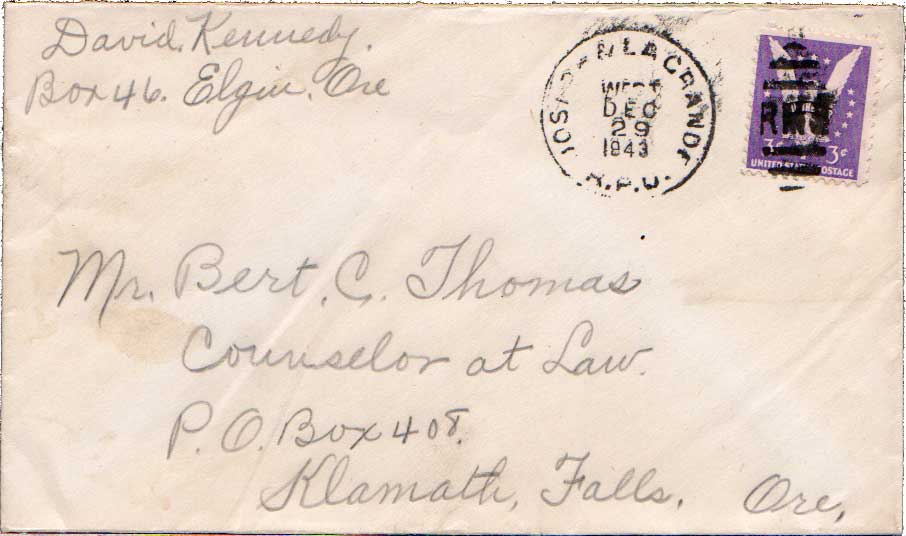 David. Kennedy.
Box 46. Elgin. Ore
JOSEPH & LA GRANDE
WEST
DEC
29
1943
R.P.O.
RMS
3¢ 3¢
UNITED STATES POSTAGE
Mr. Bert. C. Thomas
Counselor at Law.
P.O. Box 408.
Klamath, Falls, Ore,